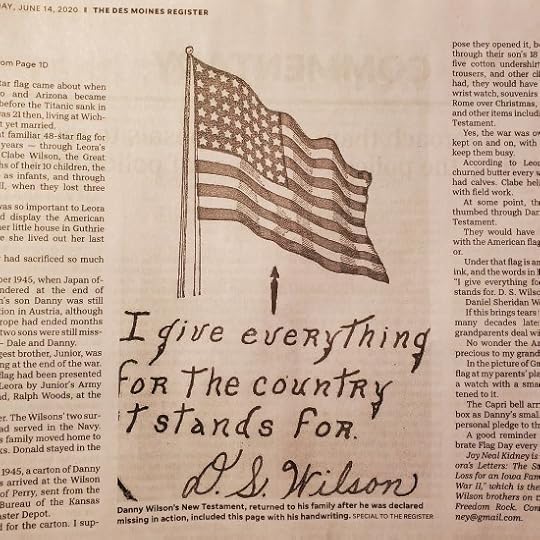 AY, JUNE 14, 2020 I THE DES MOINES REGISTER
om Page 1D
tar flag came about when
o and Arizona became
before the Titanic sank in
was 21 then, living at Wich-
t yet married.
t familiar 48-star flag for
years — through Leora's
Clabe Wilson, the Great
hs of their 10 children, the
as infants, and through
II, when they lost three
was so important to Leora
d display the American
er little house in Guthrie
e she lived out her last
had sacrificed so much
ber 1945, when Japan of-
ndered at the end of
n's son Danny was still
tion in Austria, although
rope had ended months
two sons were still miss-
– Dale and Danny.
gest brother, Junior, was
ng at the end of the war.
flag had been presented
Leora by Junior's Army
d, Ralph Woods, at the
er. The Wilsons' two sur-
ad served in the Navy.
s family moved home to
ks. Donald stayed in the
1945, a carton of Danny
s arrived at the Wilson
of Perry, sent from the
Bureau of the Kansas
aster Depot.
d for the carton. I sup-
I give everything
for the country
it stands for.
D. S. Wilson
Danny Wilson's New Testament, returned to his family after he was declared
missing in action, included this page with his handwriting. SPECIAL TO THE REGISTER
pose they opened it, b
through their son's 18
five cotton undershirt
trousers, and other cl
had, they would have
wrist watch, souvenirs
Rome over Christmas,
and other items includi
Testament.
Yes, the war was ov
kept on and on, with
keep them busy.
According to Leo
churned butter every s
had calves. Clabe hel
with field work.
At some point, th
thumbed through Dan
Testament.
They would have
with the American flag
or.
Under that flag is an
ink, and the words in
"I give everything fo
stands for. D. S. Wilso
Daniel Sheridan W
If this brings tears
many decades later
grandparents deal wi
No wonder the Am
precious to my grand
In the picture of Gr
flag at my parents' pla
a watch with a sma
tened to it.
The Capri bell arr
box as Danny's small
personal pledge to th
A good reminder
brate Flag Day every
Joy Neal Kidney is
ora's Letters: The Sa
Loss for an Iowa Fam
War II," which is the
Wilson brothers on t
Freedom Rock. Con
ney@gmail.com.